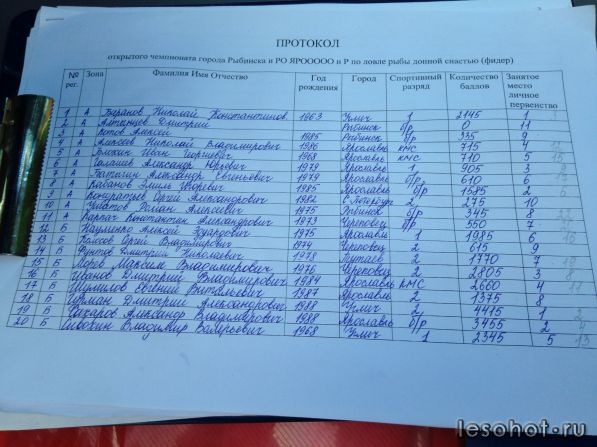 ПРОТОКОЛ
открытого чемпионата города Рыбинска и РО ЯРОООООО и Р по ловле рыбы донной снастью (фидер)
№ рег. Зона Фамилия Имя Отчество Год рождения Город Спортивный разряд Количество баллов Занятое место личное первенство
1 А Баранов Николай Константинов. 1963 Углич 1 2145 1
2 А Дмитрий Рыбинск б/р 0 11
3 А Алексей 1985 Рыбинск б/р 335 9
4 А Алексеев Николай Владимирович 1986 Ярославль КМС 715 4
5 А Блохин Иван Юрьевич 1968 Ярославль КМС 710 5
6 А Александр Юрьевич 1979 Ярославль 1 905 3
7 А Александр Евгеньевич 1979 Ярославль б/р 610 6
8 А Кабанов Эмиль 1985 Ярославль б/р 1585 2
9 А Кондратьев Сергей Александрович 1982 С Петербург 2 275 10
10 А Роман Алексеевич 1975 Рыбинск б/р 345 8
11 А Карпач Константин Александрович 1973 Череповец б/р 550 7
12 Б Науменко Алексей Эдуардович 1975 Ярославль 1 1985 6
13 Б Колосов Сергей Владимирович 1974 Череповец 2 615 9
14 Б Дмитрий Николаевич 1978 Тутаев 2 1770 7
15 Б Максим Владимирович 1976 Череповец 2 2805 3
16 Б Иванов Дмитрий Владимирович 1984 Ярославль КМС 2660 4
17 Б Шумилов Евгений Витальевич 1987 Ярославль 2 1375 8
18 Б Дмитрий Александрович 1988 Углич 2 4415 1
19 Б Сахаров Александр Владимирович 1988 Ярославль б/р 3455 2
20 Б Владимир Валерьевич 1968 Углич 1 2345 5
lesohot.ru